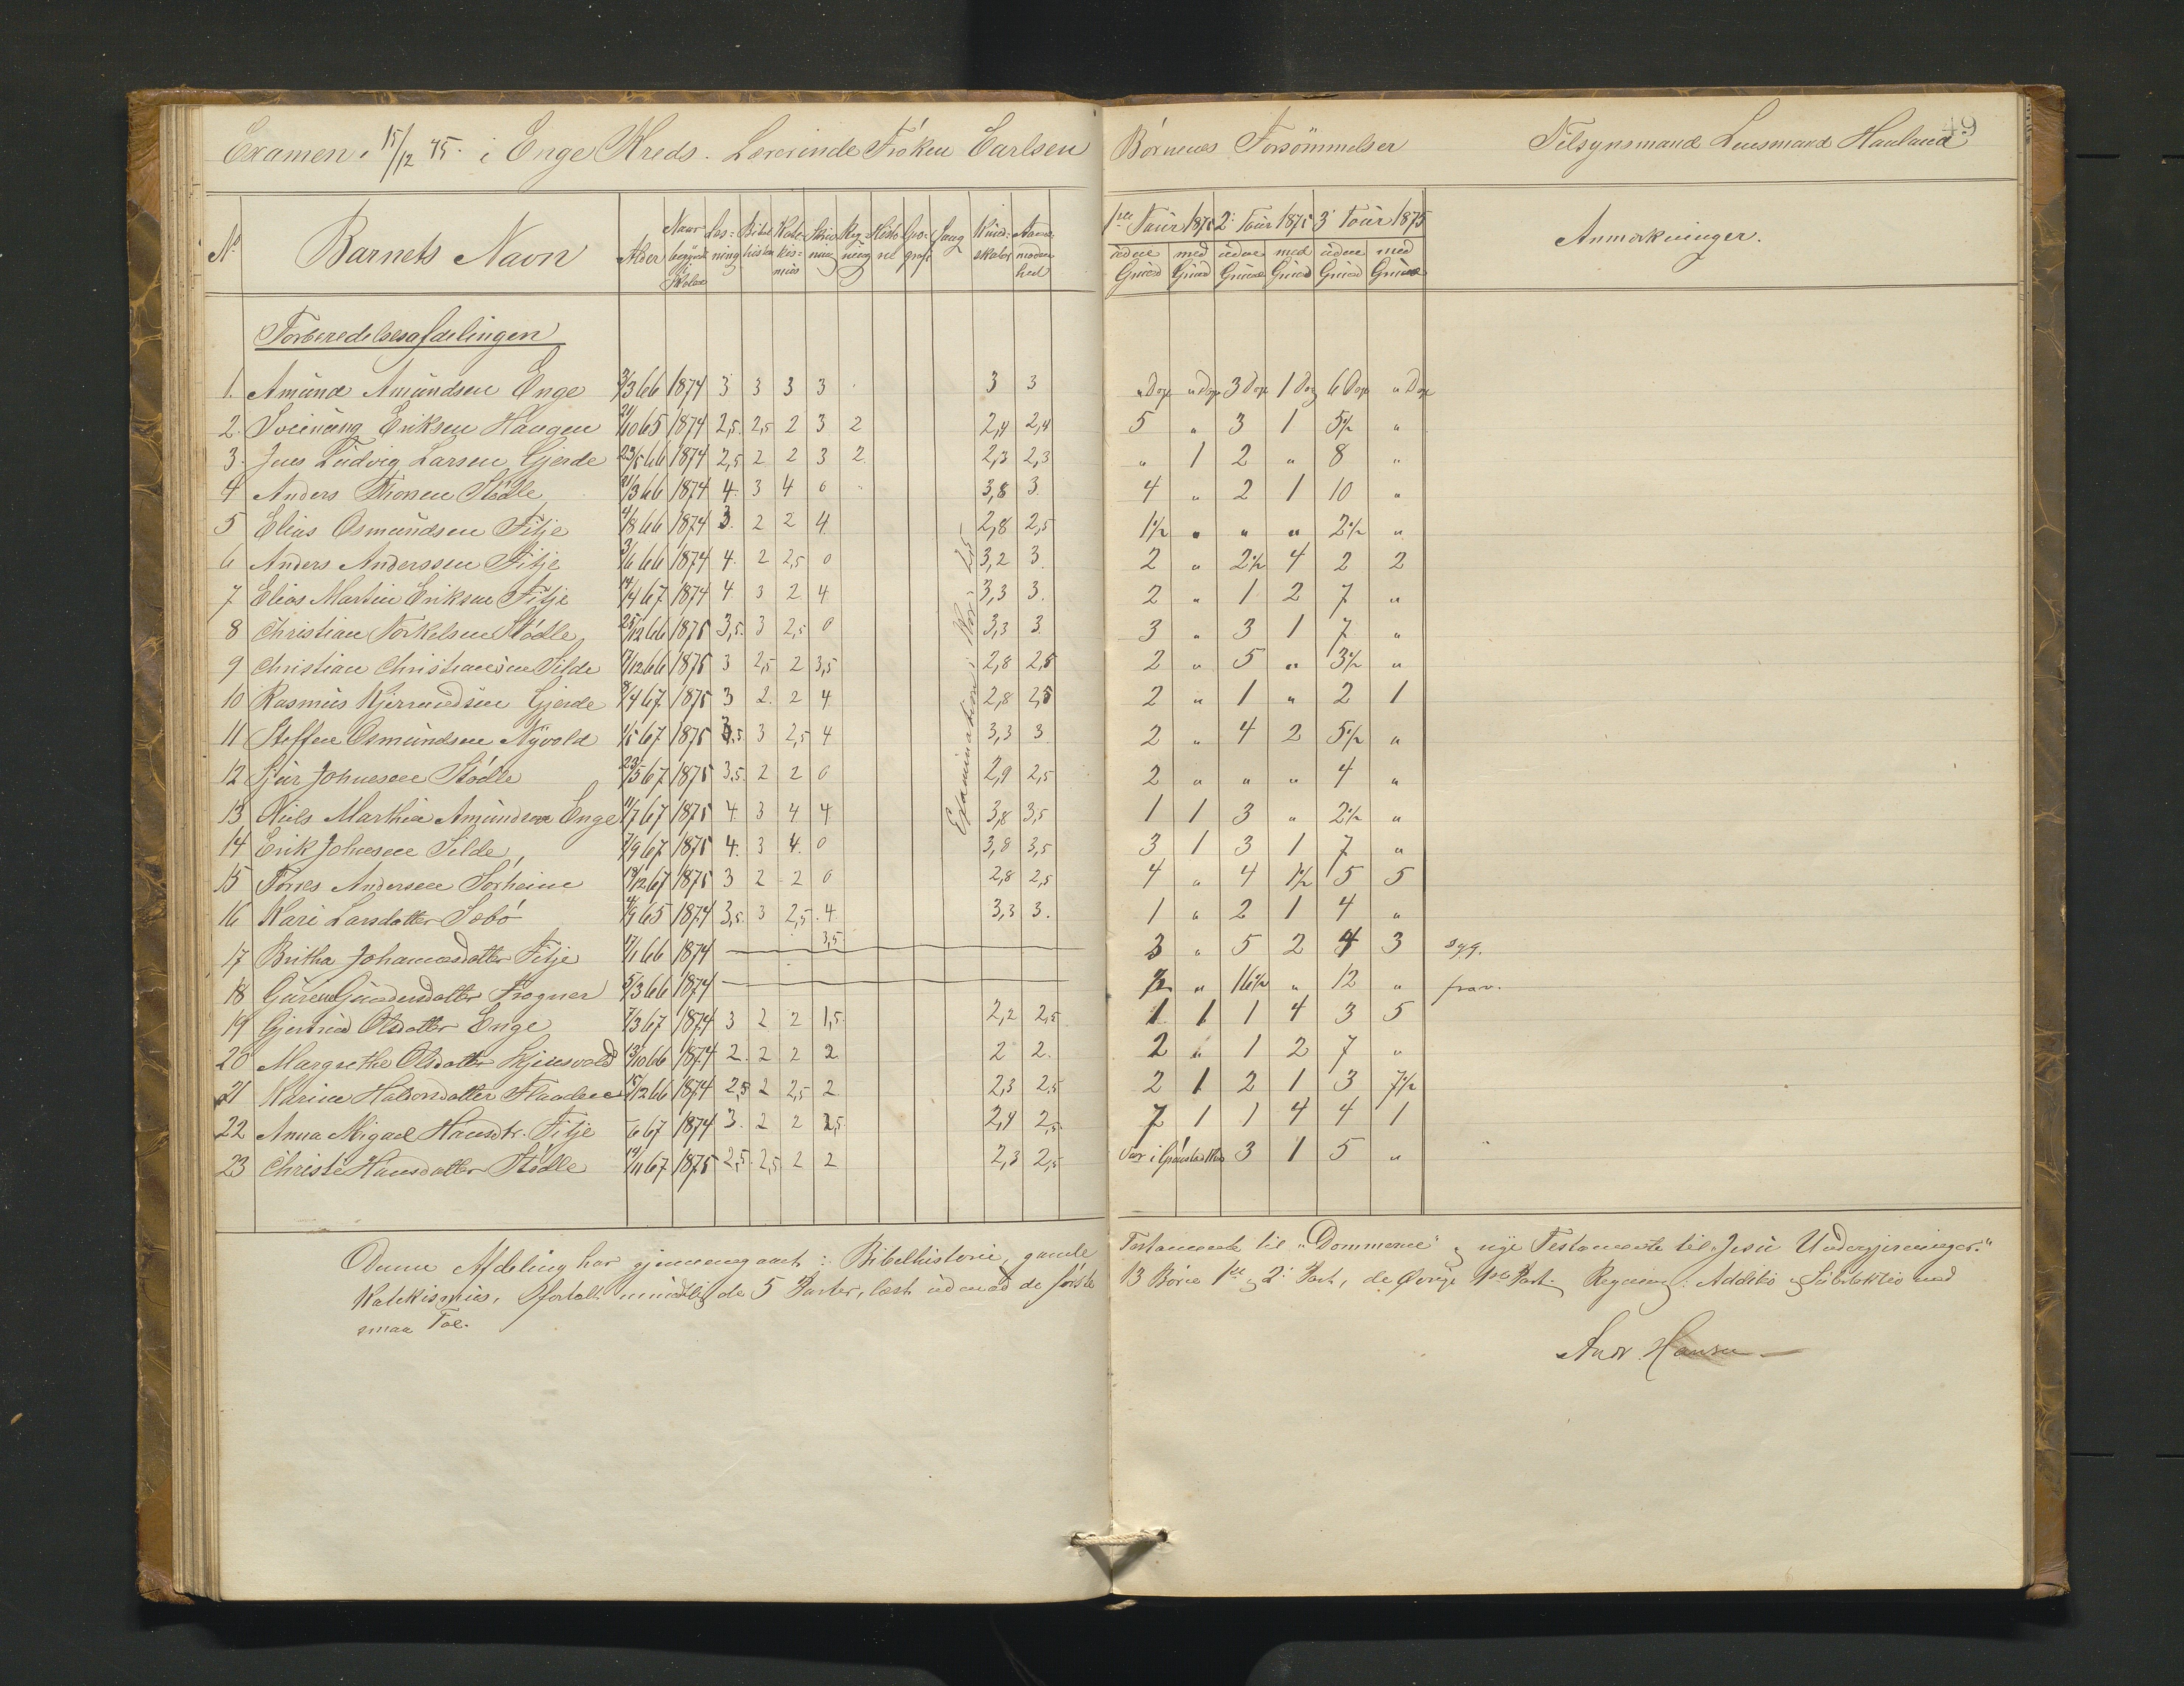 Examen 15/12 75. i Enge Kreds. Lærerinde Frøken Carlsen
Børnenes Forsømmelser Tilsynsmand Lensmand Hauland
49
No Barnets Navn Alder Naar begyndt Skolen Læs=ning Bibelhistorie Kate-kis-mus Skriv-ning Reg-ning Histo-rie Geo-grafi Sang Kund-skaber Aands-moden-hed
1ste Tour 1875 2: Tour 1875 3: Tour 1875 Anmærkninger.
uden Grund med Grund uden Grund med Grund uden Grund med Grund
Forberedelsesafdelingen
1. Amund Amundsen Enge 3/3 66 1874 3 3 3 3 3 3 " Dge " Dge 3 Dge 1 Dag 6 Dge " Dge
2. Sveinung Eriksen Haugen 21/10 65 1874 2,5 2,5 2 3 2 2,4 2,4 5 " 3 1 5½ "
3. Jens Ludvig Larsen Gjerde 23/5 66 1874 2,5 2 2 3 2 2,3 2,3 " 1 2 " 8 "
4 Anders Thorsen Stødle 21/3 66 1874 4 3 4 0 3,8 3 4 " 2 1 10 "
5 Elias Osmundsen Fitje 4/8 66 1874 3 2 2 4 2,8 2,5 1½ " " " 2½ "
6 Anders Anderssen Fitje 3/6 66 1874 4 2 2,5 0 3,2 3 2 " 2½ 4 2 2
7 Elias Martin Eriksen Fitje 14/4 67 1874 4 3 2 4 3,3 3 2 " 1 2 7 "
8 Christian Torkelsen Stødle 25/12 66 1875 3,5 3 2,5 0 3,3 3 3 " 3 1 7 "
9 Christian Christiansen Silde 17/12 66 1875 3 2,5 2 3,5 2,8 2,5 2 " 5 " 3½ "
10 Rasmus Gjerde 8/4 67 1875 3 2 2 4 2,8 2,5 2 " 1 " 2 1
11 Steffen Osmundsen Nyvold 1/5 67 1875 3,5 3 2,5 4 3,3 3 2 " 4 2 5½ "
12 Sjur Johnesen Stødle 23/5 67 1875 3,5 2 2 0 2,9 2,5 2 " " " 4 "
13 Niels Marthin Amundsen Enge 11/7 67 1875 4 3 4 4 3,8 3,5 1 1 3 " 2½ "
14 Erik Johnesen Silde 7/9 67 1875 4 3 4 0 3,8 3,5 3 1 3 1 7 "
15 Torres Andersen Sørheim 19/12 67 1875 3 2 2 0 2,8 2,5 4 " 4 1½ 5 5
16 Kari Larsdatter Sebø 4/9 65 1874 3,5 3 2,5 4 3,3 3 1 " 2 1 4 "
17 Britha Johannesdatter Fitje 17/1 66 1874 3,5 3 " 5 2 4 3 syg.
18 Guren Gundersdatter Frogner 5/3 66 1874 ½ " 16½ " 12 " frav.
19 Gjertrud Olsdatter Enge 7/3 67 1874 3 2 2 1,5 2,2 2,5 1 1 1 4 3 5
20 Margrethe Olsdatter Skjensvold 13/10 66 1874 2 2 2 2 2 2 2 " 1 2 7 "
21 Karine Haldorsdatter 15/12 66 1874 2,5 2 2,5 2 2,3 2,5 2 1 2 1 3 7½
22 Anna Migael Hansdtr. Fitje /6 67 1874 3 2 2 2,5 2,4 2,5 7 1 1 4 4 1
23 Christi Hansdatter Stødle 19/11 67 1875 2,5 2,5 2 2 2,3 2,5 Var i 3 1 5 "
Examination: Kar: 2,5
Denne Afdeling har gjennemgaaet: Bibelhistorie, gamle Testamente til "Dommerne" & nye Testamente til "Jesu Undergjerninger."
Katekismus, fortalt mundtlig de 5 Parter, læst udenad de første 13 Børn 1ste & 2: Part, de Øvrige 1ste Part. Regning: Additio & Subtraktio med
smaa Tal.
Andr. Hansen